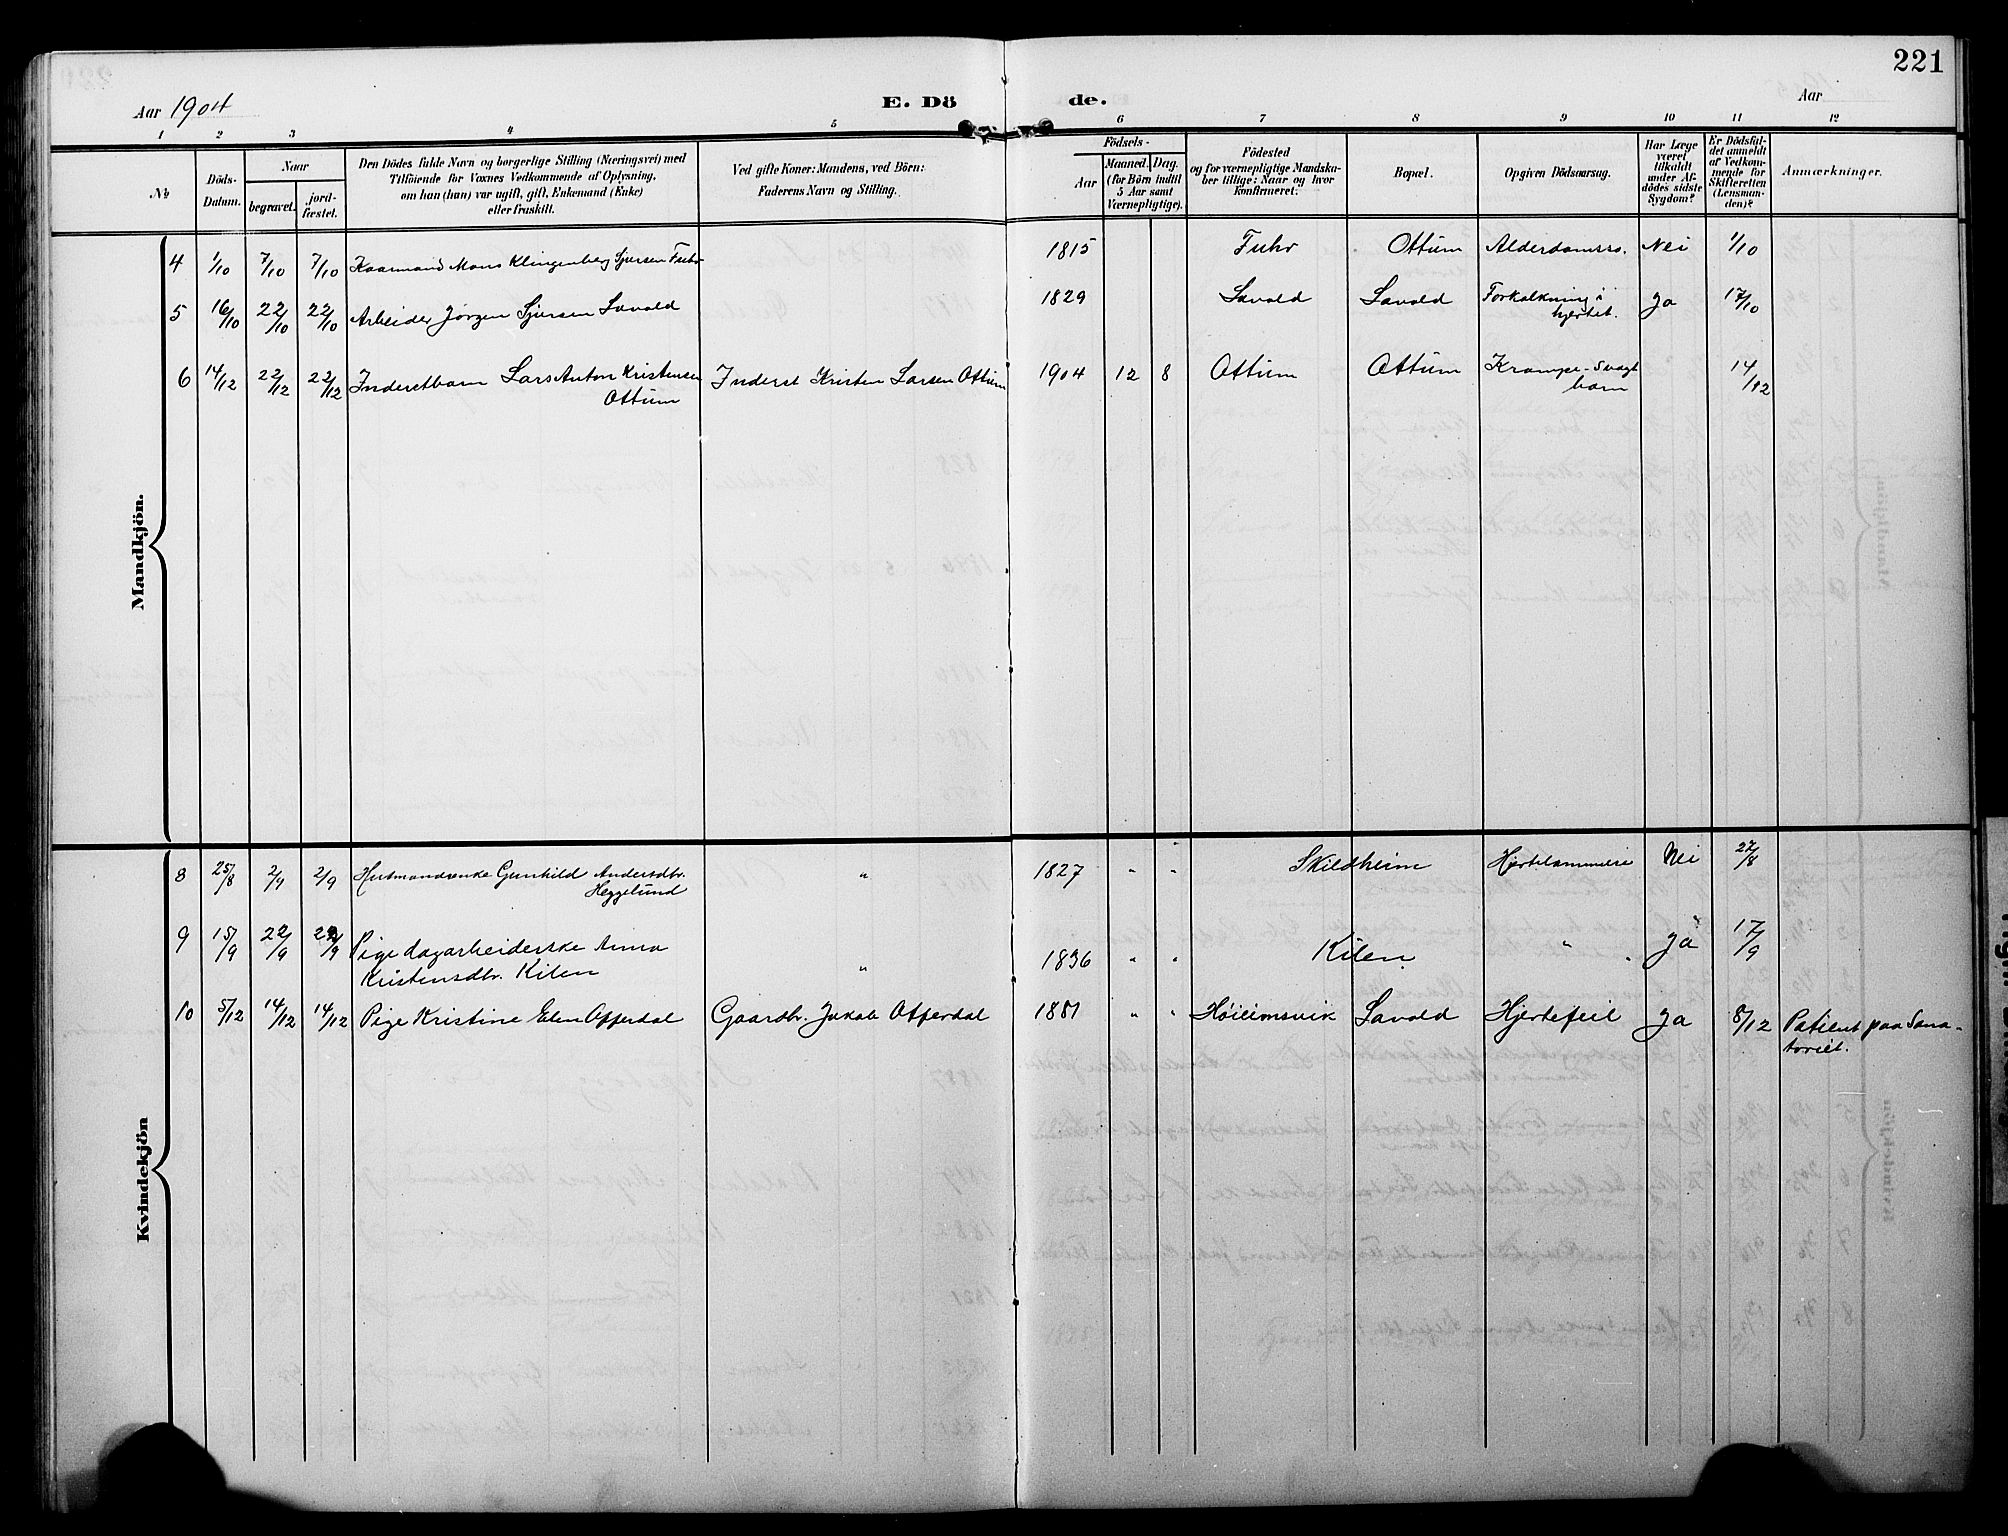 221
Aar 1904 E. Dö de. Aar
1 2 3 4 5 6 7 8 9 10 11 12
№
Døds-
Datum.
Naar
begravet.
jord-
fæstet.
Den Dödes fulde Navn og borgerlige Stilling (Næringsvei) med
Tilföiende for Voxnes Vedkommende af Oplysning,
om han (hun) var ugift, gift, Enkemand (Enke)
eller fraskilt.
Ved gifte Koner: Mandens, ved Börn:
Faderens Navn og Stilling.
Födsels-
Aar
Maaned. Dag.
(for Börn indtil
5 Aar samt
Værnepligtige).
Födested
og for værnepligtige Mandska-
ber tillige: Naar og hvor
konfirmeret.
Bopæl.
Opgiven Dödsaarsag.
Har Læge
været
tilkaldt
under Af-
dödes sidste
Sygdom?
Er Dödsfal-
det anmeldt
af Vedkom-
mende for
Skifteretten
(Lensman-
den)?
Anmærkninger.
Mandkjön.
4 1/10 7/10 7/10 Kaarmand Mons Klingenberg Sjursen Fuhr 1815 Fuhr Ottum Alderdomssv. Nei 1/10
5 16/10 22/10 22/10 Arbeider Jørgen Sjursen Lavold 1829 Lavold Lavold Forkalkning i
hjertet. Ja 17/10
6 14/12 22/12 22/12 Inderstbarn Lars Anton Kristensen
Ottum Inderst Kristen Larsen Ottum 1904 12 8 Ottum Ottum Krampe-Svagt
barn 14/12
Kvindekjön
8 25/8 2/9 2/9 Husmandsenke Gunhild Andersdtr.
Heggelund " 1827 " " Skildheim Hjertelammelse Nei 27/8
9 15/9 22/9 22/9 Pige dagarbeiderske Anna
Kristensdtr. Kilen " 1836 " " Kilen " Ja 17/9
10 5/12 14/12 14/12 Pige Kristine Elen Offerdal Gaardbr. Jakob Offerdal 1881 " " Høieimsvik Lavold Hjertefeil Ja 8/12 Patient paa Sana-
toriet.